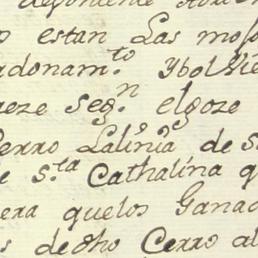 deponiente
o estan Las moJo
rdonam.to Ybolvie
reze seg.n elgoze
Cerro La linia de s
e s.ta Cathalina q
era quelos Ganad
s de dho Cerro al